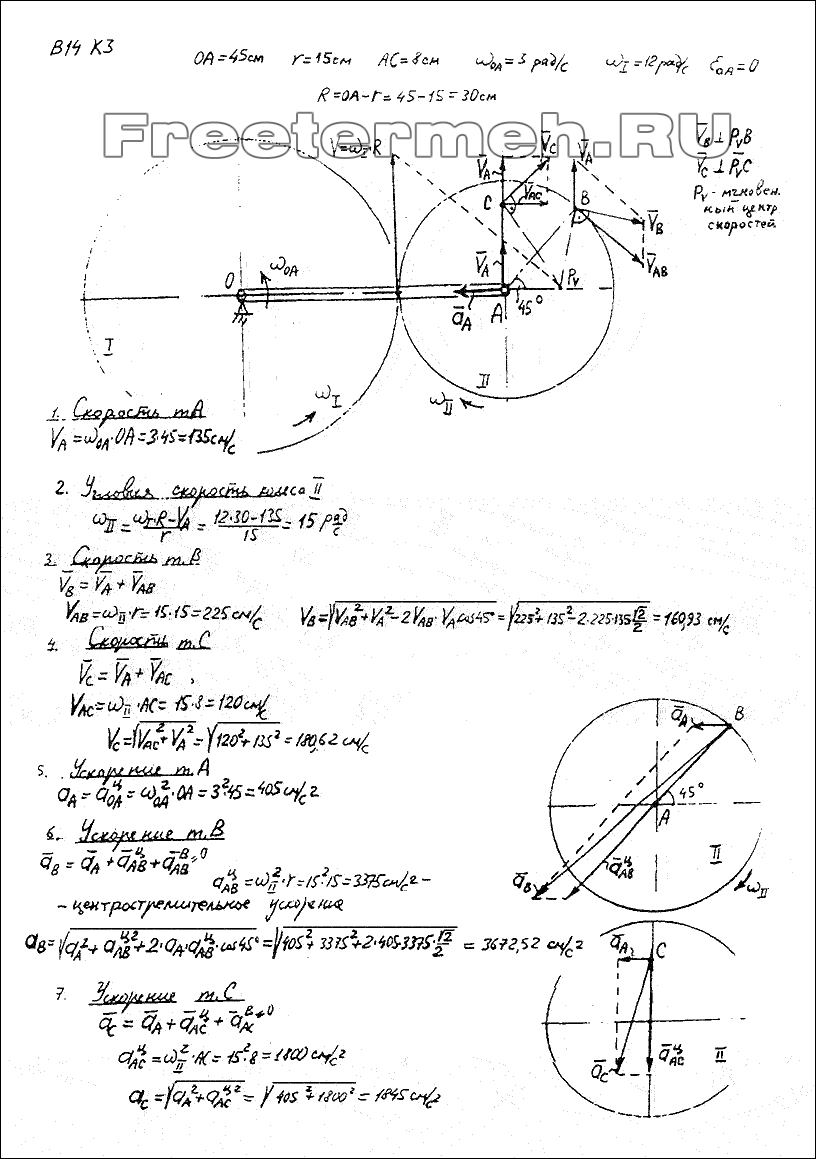 В14 К3
OA=45см r=15см AC=8см ω_OA=3 рад/с ω_I=12рад/с ε_OA=0
R=OA-r=45-15=30см
Freetermeh.RU
V=ω_I·R V̄_A V̄_C V̄_A
V̄_B⊥P_vB
V̄_C⊥P_vC
P_v - мгновен.
ный центр
скоростей
C V̄_AC B V̄_B
V̄_A V̄_AB
O ω_OA P_v
ā_A A 45°
I II
ω_I ω_II
1. Скорость т.А
V_A=ω_OA·OA=3·45=135см/с
2. Угловая скорость колеса II
ω_II=(ω_I·R-V_A)/r=(12·30-135)/15=15 рад/с
3. Скорость т.В
V̄_B=V̄_A+V̄_AB
V_AB=ω_II·r=15·15=225см/с V_B=√(V_AB²+V_A²-2V_AB·V_A cos45°)=√(225²+135²-2·225·135·√2/2)=160,93 см/с
4. Скорость т.С
V̄_C=V̄_A+V̄_AC,
V_AC=ω_II·AC=15·8=120см/с
V_C=√(V_AC²+V_A²)=√(120²+135²)=180,62 см/с
5. Ускорение т.А
a_A=a^ц_OA=ω²_OA·OA=3²·45=405см/с2
6. Ускорение т.В
ā_B=ā_A+ā^ц_AB+ā^B_AB=0
a^ц_AB=ω²_II·r=15²·15=3375см/с2-
-центростремительное ускорение
a_B=√(a_A²+a^ц_AB²+2·a_A·a^ц_AB·cos45°)=√(405²+3375²+2·405·3375·√2/2)=3672,52 см/с2
ā_A B
45°
A
ā_B ā^ц_AB II
ω_II
7. Ускорение т.С
ā_C=ā_A+ā^ц_AC+ā^B_AC=0
a^ц_AC=ω²_II·AC=15²·8=1800см/с2
a_C=√(a_A²+a^ц_AC²)=√(405²+1800²)=1845см/с2
ā_A C
ā_C ā^ц_AC II